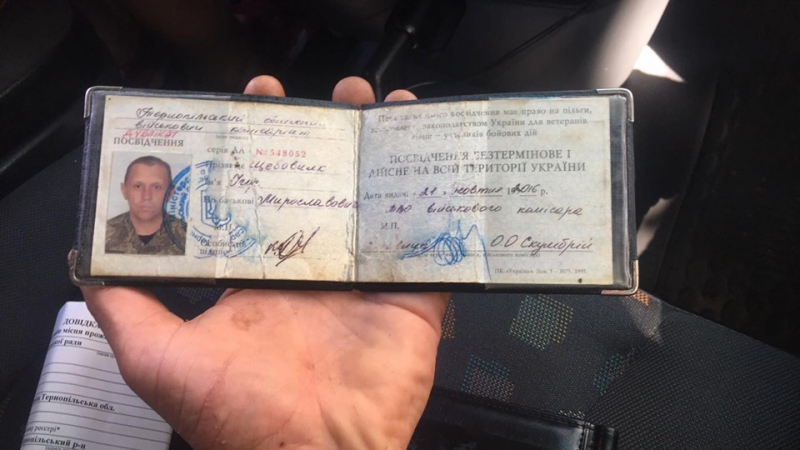 Тернопільський обласний
військовий комісаріат
Дублікат
ПОСВІДЧЕННЯ
серія АА № 548052
Прізвище Щебовик
Ім'я Ігор
По батькові Мирославович
М.П.
Особистий
підпис
право на пільги,
законодавством України для ветеранів
бойових дій
ПОСВІДЧЕННЯ БЕЗТЕРМІНОВЕ І
ДІЙСНЕ НА ВСІЙ ТЕРИТОРІЇ УКРАЇНИ
Дата видачі 21 жовтня 2016
військового комісара
М.П.
О О Скумбрій
ДОВІДКА
місця
ї ради
Тернопільська обл.
реєстрі*
нопільський р-н